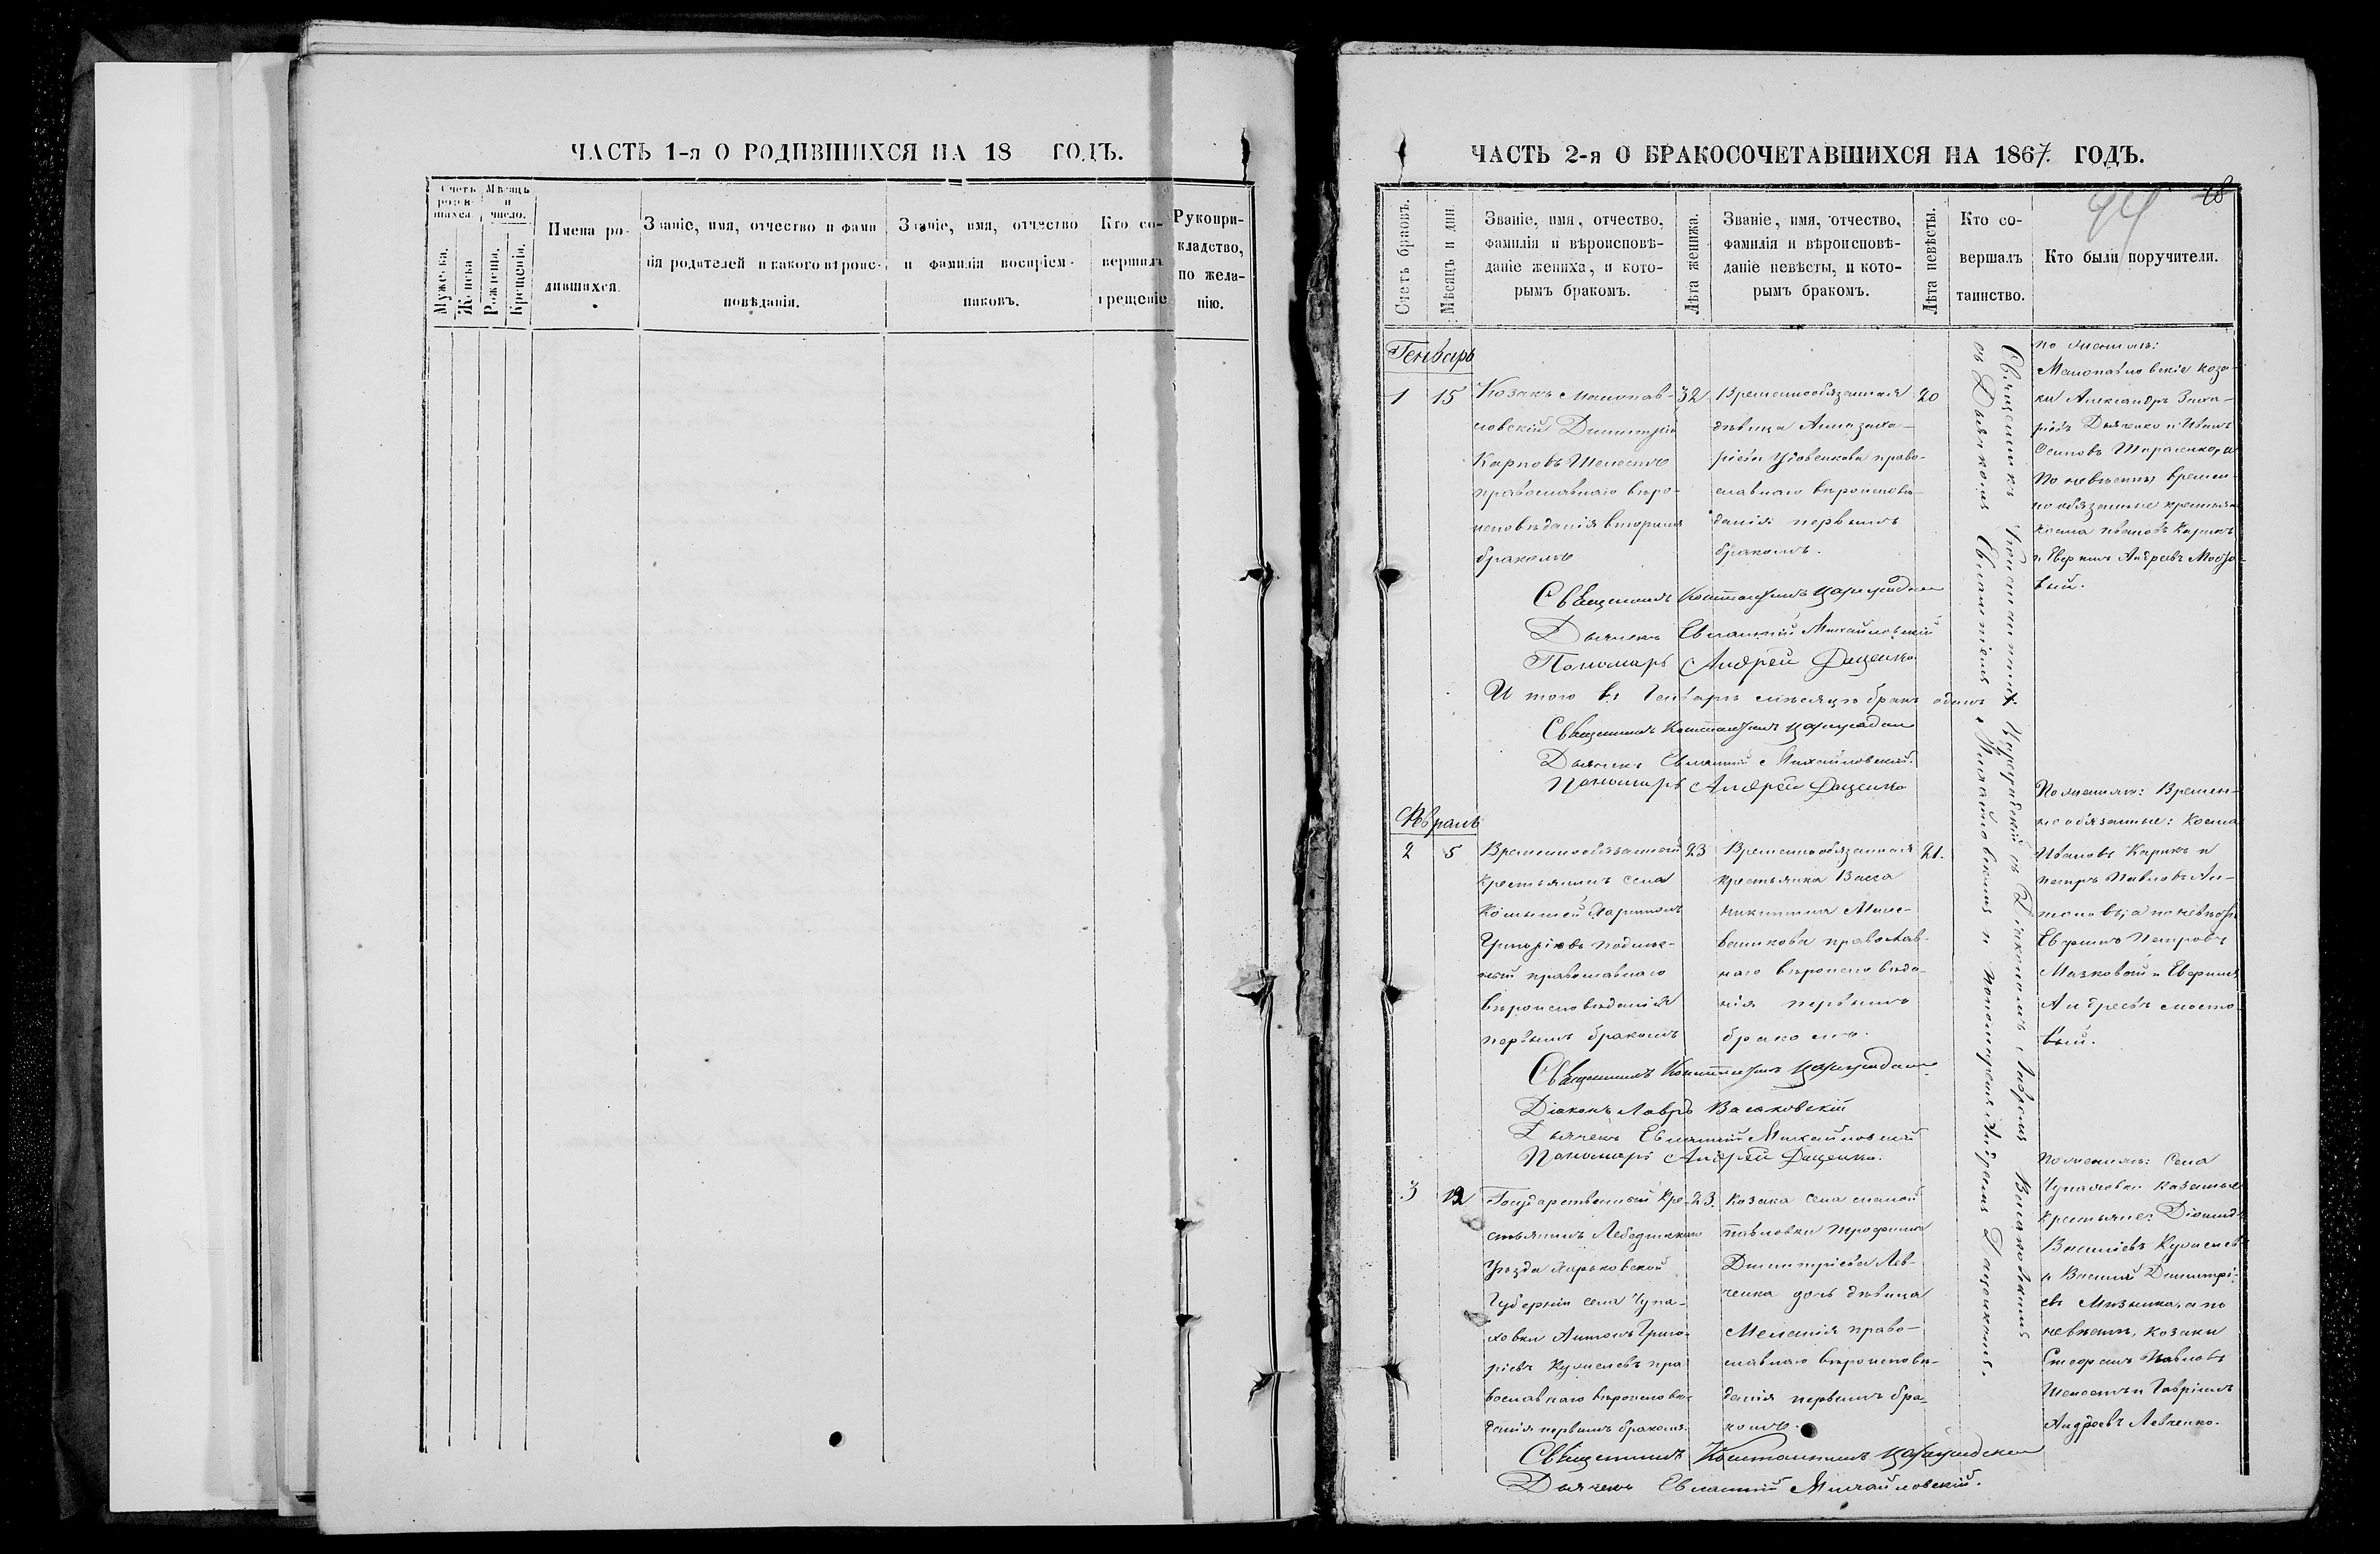 ЧАСТЬ 1-я О РОДИВШИХСЯ НА 18 ГОДЪ.
Счетъ родив-шихся.
Мѣсяцъ и число.
Мужеска.
Женска
Рожденія.
Крещенія.
Имена ро-
дившихся.
Званіе, имя, отчество и фами
лія родителей и какого вѣроис-
повѣданія.
Званіе, имя, отчество
и фамилія воспріем-
никовъ.
Кто со-
вершалъ
крещеніе
Рукопри-
кладство,
по жела-
нію.
ЧАСТЬ 2-я О БРАКОСОЧЕТАВШИХСЯ НА 1867. ГОДЪ.
Счетъ браковъ.
Мѣсяцъ и дни.
Званіе, имя, отчество,
фамилія и вѣроисповѣ-
даніе жениха, и кото-
рымъ бракомъ.
Лѣта жениха.
Званіе, имя, отчество,
фамилія и вѣроисповѣ-
даніе невѣсты, и кото-
рымъ бракомъ.
Лѣта невѣсты.
Кто со-
вершалъ
таинство.
Кто были поручители.
Генварь
1
15
Козакъ Малопав-
ловскій Димитрій
Карповъ Шелестъ
православнаго вѣро-
исповѣданія вторымъ
бракомъ
32
Временнообязанная
дѣвица Анна Заха-
ріева православнаго вѣроисповѣ-
данія первымъ
бракомъ.
20
Священникъ Константинъ
съ Дьячкомъ Евлампіемъ Михайловскимъ и пономаремъ Андреемъ Даценкомъ.
по женихѣ:
Малопавловскіе коза-
ки Александръ Заха-
ріевъ Дьяченко и Иванъ
Осиповъ
по невѣстѣ времен-
нообязанные крестьяне
Косма Ивановъ Карикъ
и Евфимъ Андреевъ Мосто-
вый.
Священникъ Константинъ
Дьячекъ Евлампій Михайловскій
Пономарь Андрей Даценко
Итого въ Генварѣ мѣсяцѣ бракъ одинъ
Священникъ Константинъ
Дьячекъ Евлампій Михайловскій.
Пономарь Андрей Даценко
Февраль
2
5
Временнообязанный
крестьянинъ села
Харитонъ
Григоріевъ
православнаго
вѣроисповѣданія
первымъ бракомъ
23
Временнообязанная
крестьянка Васса
Никитина
православ-
наго вѣроисповѣда-
нія первымъ
бракомъ.
21.
По женихѣ: Времен-
нообязанные: Косма
Ивановъ Карикъ и
Петръ Павловъ Ан-
тоновъ, а по невѣстѣ
Евфимъ Петровъ
Мазковой и Евфимъ
Андреевъ Мосто-
вый.
Священникъ Константинъ
Діаконъ Лавръ
Дьячекъ Евлампій Михайловскій
Пономарь Андрей Даценко.
3
12
Государственный кре-
стьянинъ Лебединскаго
Уѣзда Харьковской
Губерніи села Чупа-
ховки Антонъ Григо-
ріевъ пра
вославнаго вѣроисповѣ-
данія первымъ бракомъ.
23.
Козака села Малой
Павловки Трофима
Димитріева Лев-
ченка дочь дѣвица
Меланія право-
славнаго вѣроисповѣ-
данія первымъ бра-
комъ.
По женихѣ: Села
Чупаховки казенные
крестьяне: Діомидъ
Василіевъ
и Василій Димитрі-
евъ а по
невѣстѣ, козаки
Стефанъ Павловъ
Шелестъ и Гавріилъ
Андреевъ Левченко.
Священникъ Константинъ
Дьячекъ Евлампій Михайловскій.